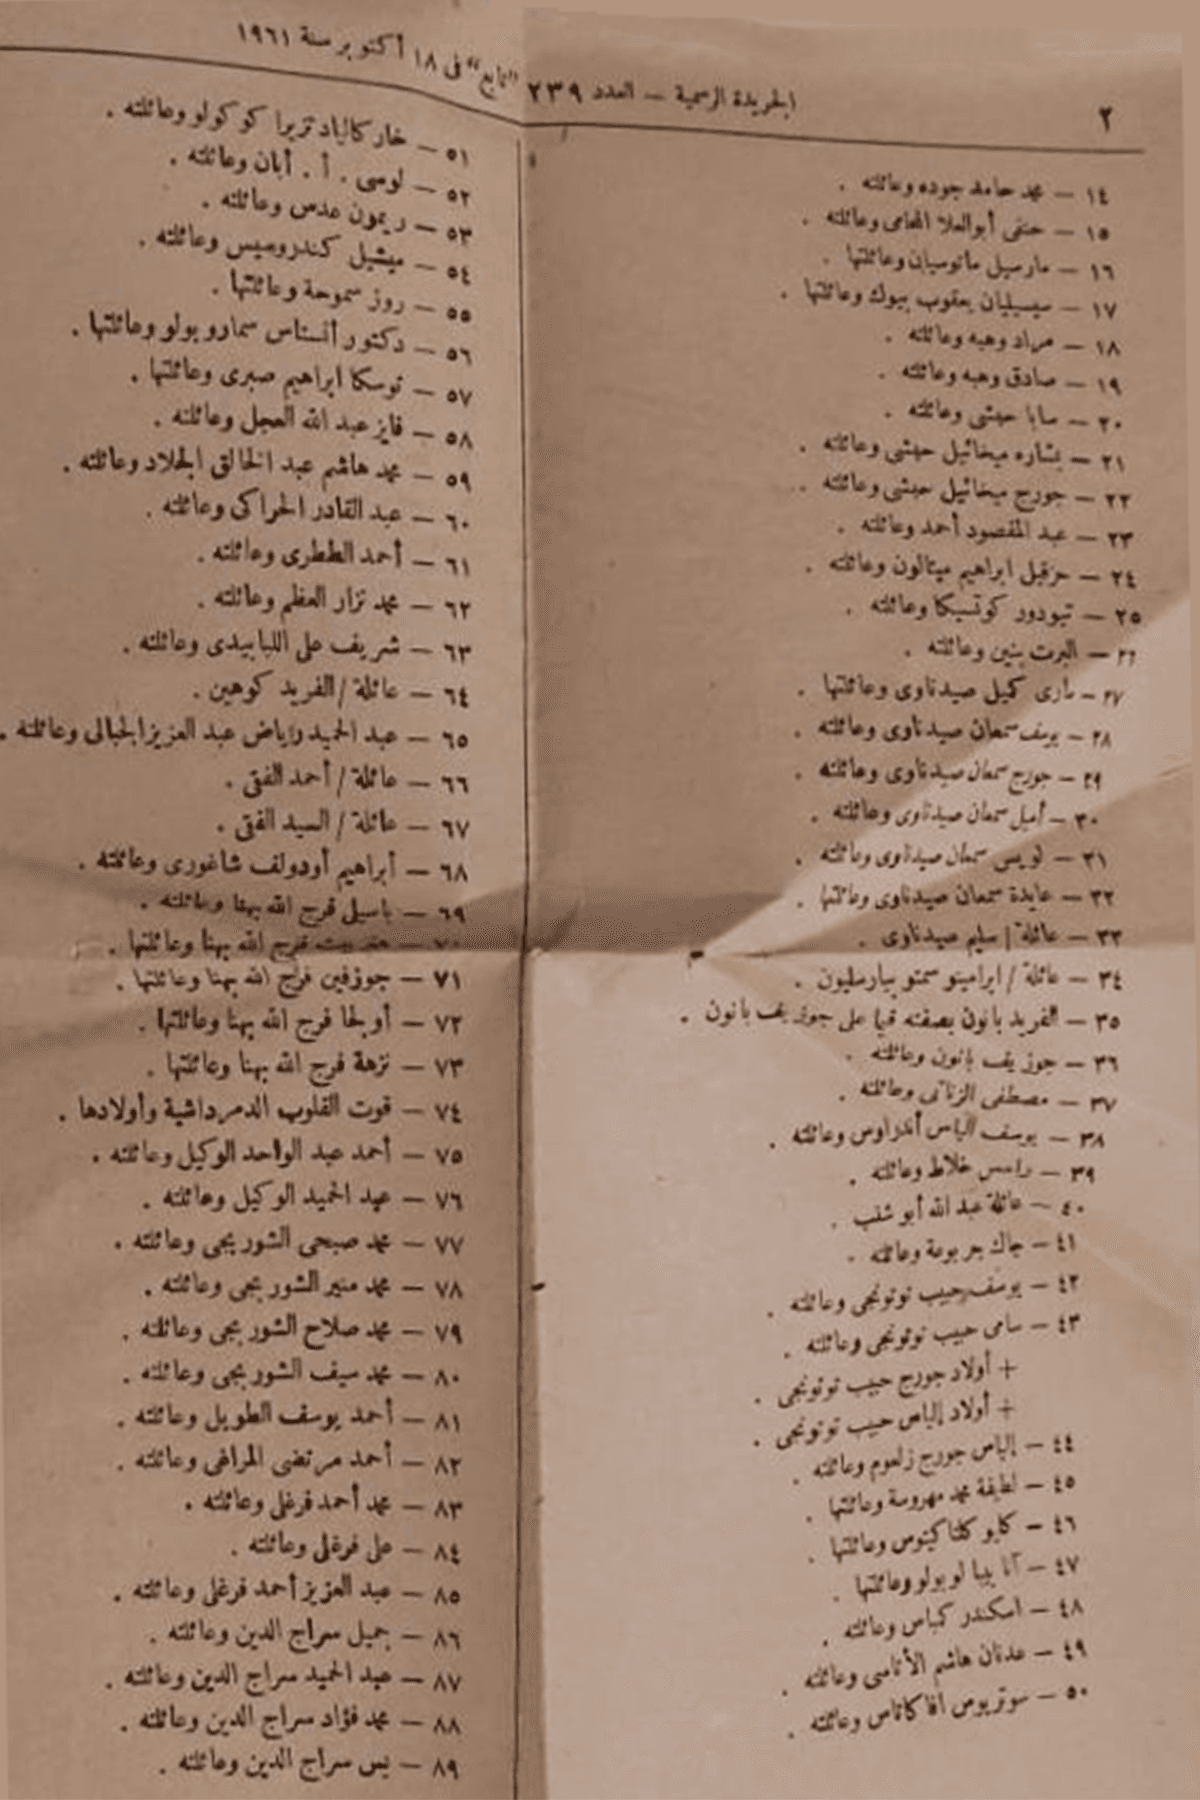 ٢
الجريدة الرسمية — العدد ٢٣٩ "تابع" فى ١٨ أكتوبر سنة ١٩٦١
١٤ — محمد حامد جوده وعائلته .
١٥ — حنفى أبو العلا المحامى وعائلته .
١٦ — مارسيل ماتوسيان وعائلتها .
١٧ — سيسيليان يعقوب بيوك وعائلتها .
١٨ — مراد وهبه وعائلته .
١٩ — صادق وهبه وعائلته .
٢٠ — سابا حبشى وعائلته .
٢١ — بشاره ميخائيل حبشى وعائلته .
٢٢ — جورج ميخائيل حبشى وعائلته .
٢٣ — عبد المقصود أحمد وعائلته .
٢٤ — حزقيل ابراهيم ميتالون وعائلته .
٢٥ — تيودور كوتسيكا وعائلته .
٢٦ — البرت بنين وعائلته .
٢٧ — مارى كميل صيدناوى وعائلتها .
٢٨ — يوسف سمعان صيدناوى وعائلته .
٢٩ — جورج سمعان صيدناوى وعائلته .
٣٠ — أميل سمعان صيدناوى وعائلته .
٣١ — لويس سمعان صيدناوى وعائلته .
٣٢ — عايدة سمعان صيدناوى وعائلتها .
٣٣ — عائلة / سليم صيدناوى .
٣٤ — عائلة / ابرامينو سمتو بيارسليون .
٣٥ — الفريد بانون بصفته قيما على جوزيف بانون .
٣٦ — جوزيف بانون وعائلته .
٣٧ — مصطفى الزناتى وعائلته .
٣٨ — يوسف الياس أندراوس وعائلته .
٣٩ — رامس خلاط وعائلته .
٤٠ — عائلة عبد الله أبو شنب .
٤١ — جاك جربوعة وعائلته .
٤٢ — يوسف حبيب توتونجى وعائلته .
٤٣ — سامى حبيب توتونجى وعائلته .
+ أولاد جورج حبيب توتونجى .
+ أولاد إلياس حبيب توتونجى .
٤٤ — إلياس جورج زلعوم وعائلته .
٤٥ — لطيفة محمد مهروسة وعائلتها .
٤٦ — كايو كلتاكيتوس وعائلتها .
٤٧ — آنا بيبا لوبولو وعائلتها .
٤٨ — اسكندر كمباس وعائلته .
٤٩ — عدنان هاشم الأتاسى وعائلته .
٥٠ — سوتريوس افاكاتاس وعائلته .
٥١ — خاركالياد تزيرا كوكولو وعائلته .
٥٢ — لوسى . أ . أبان وعائلته .
٥٣ — ريمون عدس وعائلته .
٥٤ — ميشيل كندروسيس وعائلته .
٥٥ — روز سموحة وعائلتها .
٥٦ — دكتور أنستاس سماروبولو وعائلتها .
٥٧ — توسكا ابراهيم صبرى وعائلتها .
٥٨ — فايز عبد الله العجل وعائلته .
٥٩ — محمد هاشم عبد الخالق الجلاد وعائلته .
٦٠ — عبد القادر الحراكى وعائلته .
٦١ — أحمد الططرى وعائلته .
٦٢ — محمد نزار العظم وعائلته .
٦٣ — شريف على اللبابيدى وعائلته .
٦٤ — عائلة / الفريد كوهين .
٦٥ — عبد الحميد رياض عبد العزيز الجبالى وعائلته .
٦٦ — عائلة / أحمد الفقى .
٦٧ — عائلة / السيد الفقى .
٦٨ — أبراهيم أودولف شاغورى وعائلته .
٦٩ — باسيل فرج الله بهنا وعائلته .
٧٠ — فرج الله بهنا وعائلتها .
٧١ — جوزفين فرج الله بهنا وعائلتها .
٧٢ — أولجا فرج الله بهنا وعائلتها .
٧٣ — نزهة فرج الله بهنا وعائلتها .
٧٤ — قوت القلوب الدمرداشية وأولادها .
٧٥ — أحمد عبد الواحد الوكيل وعائلته .
٧٦ — عبد الحميد الوكيل وعائلته .
٧٧ — محمد صبحى الشوربجى وعائلته .
٧٨ — محمد منير الشوربجى وعائلته .
٧٩ — محمد صلاح الشوربجى وعائلته .
٨٠ — محمد سيف الشوربجى وعائلته .
٨١ — أحمد يوسف الطويل وعائلته .
٨٢ — أحمد مرتضى المراغى وعائلته .
٨٣ — محمد أحمد فرغلى وعائلته .
٨٤ — على فرغلى وعائلته .
٨٥ — عبد العزيز أحمد فرغلى وعائلته .
٨٦ — جميل سراج الدين وعائلته .
٨٧ — عبد الحميد سراج الدين وعائلته .
٨٨ — محمد فؤاد سراج الدين وعائلته .
٨٩ — يس سراج الدين وعائلته .